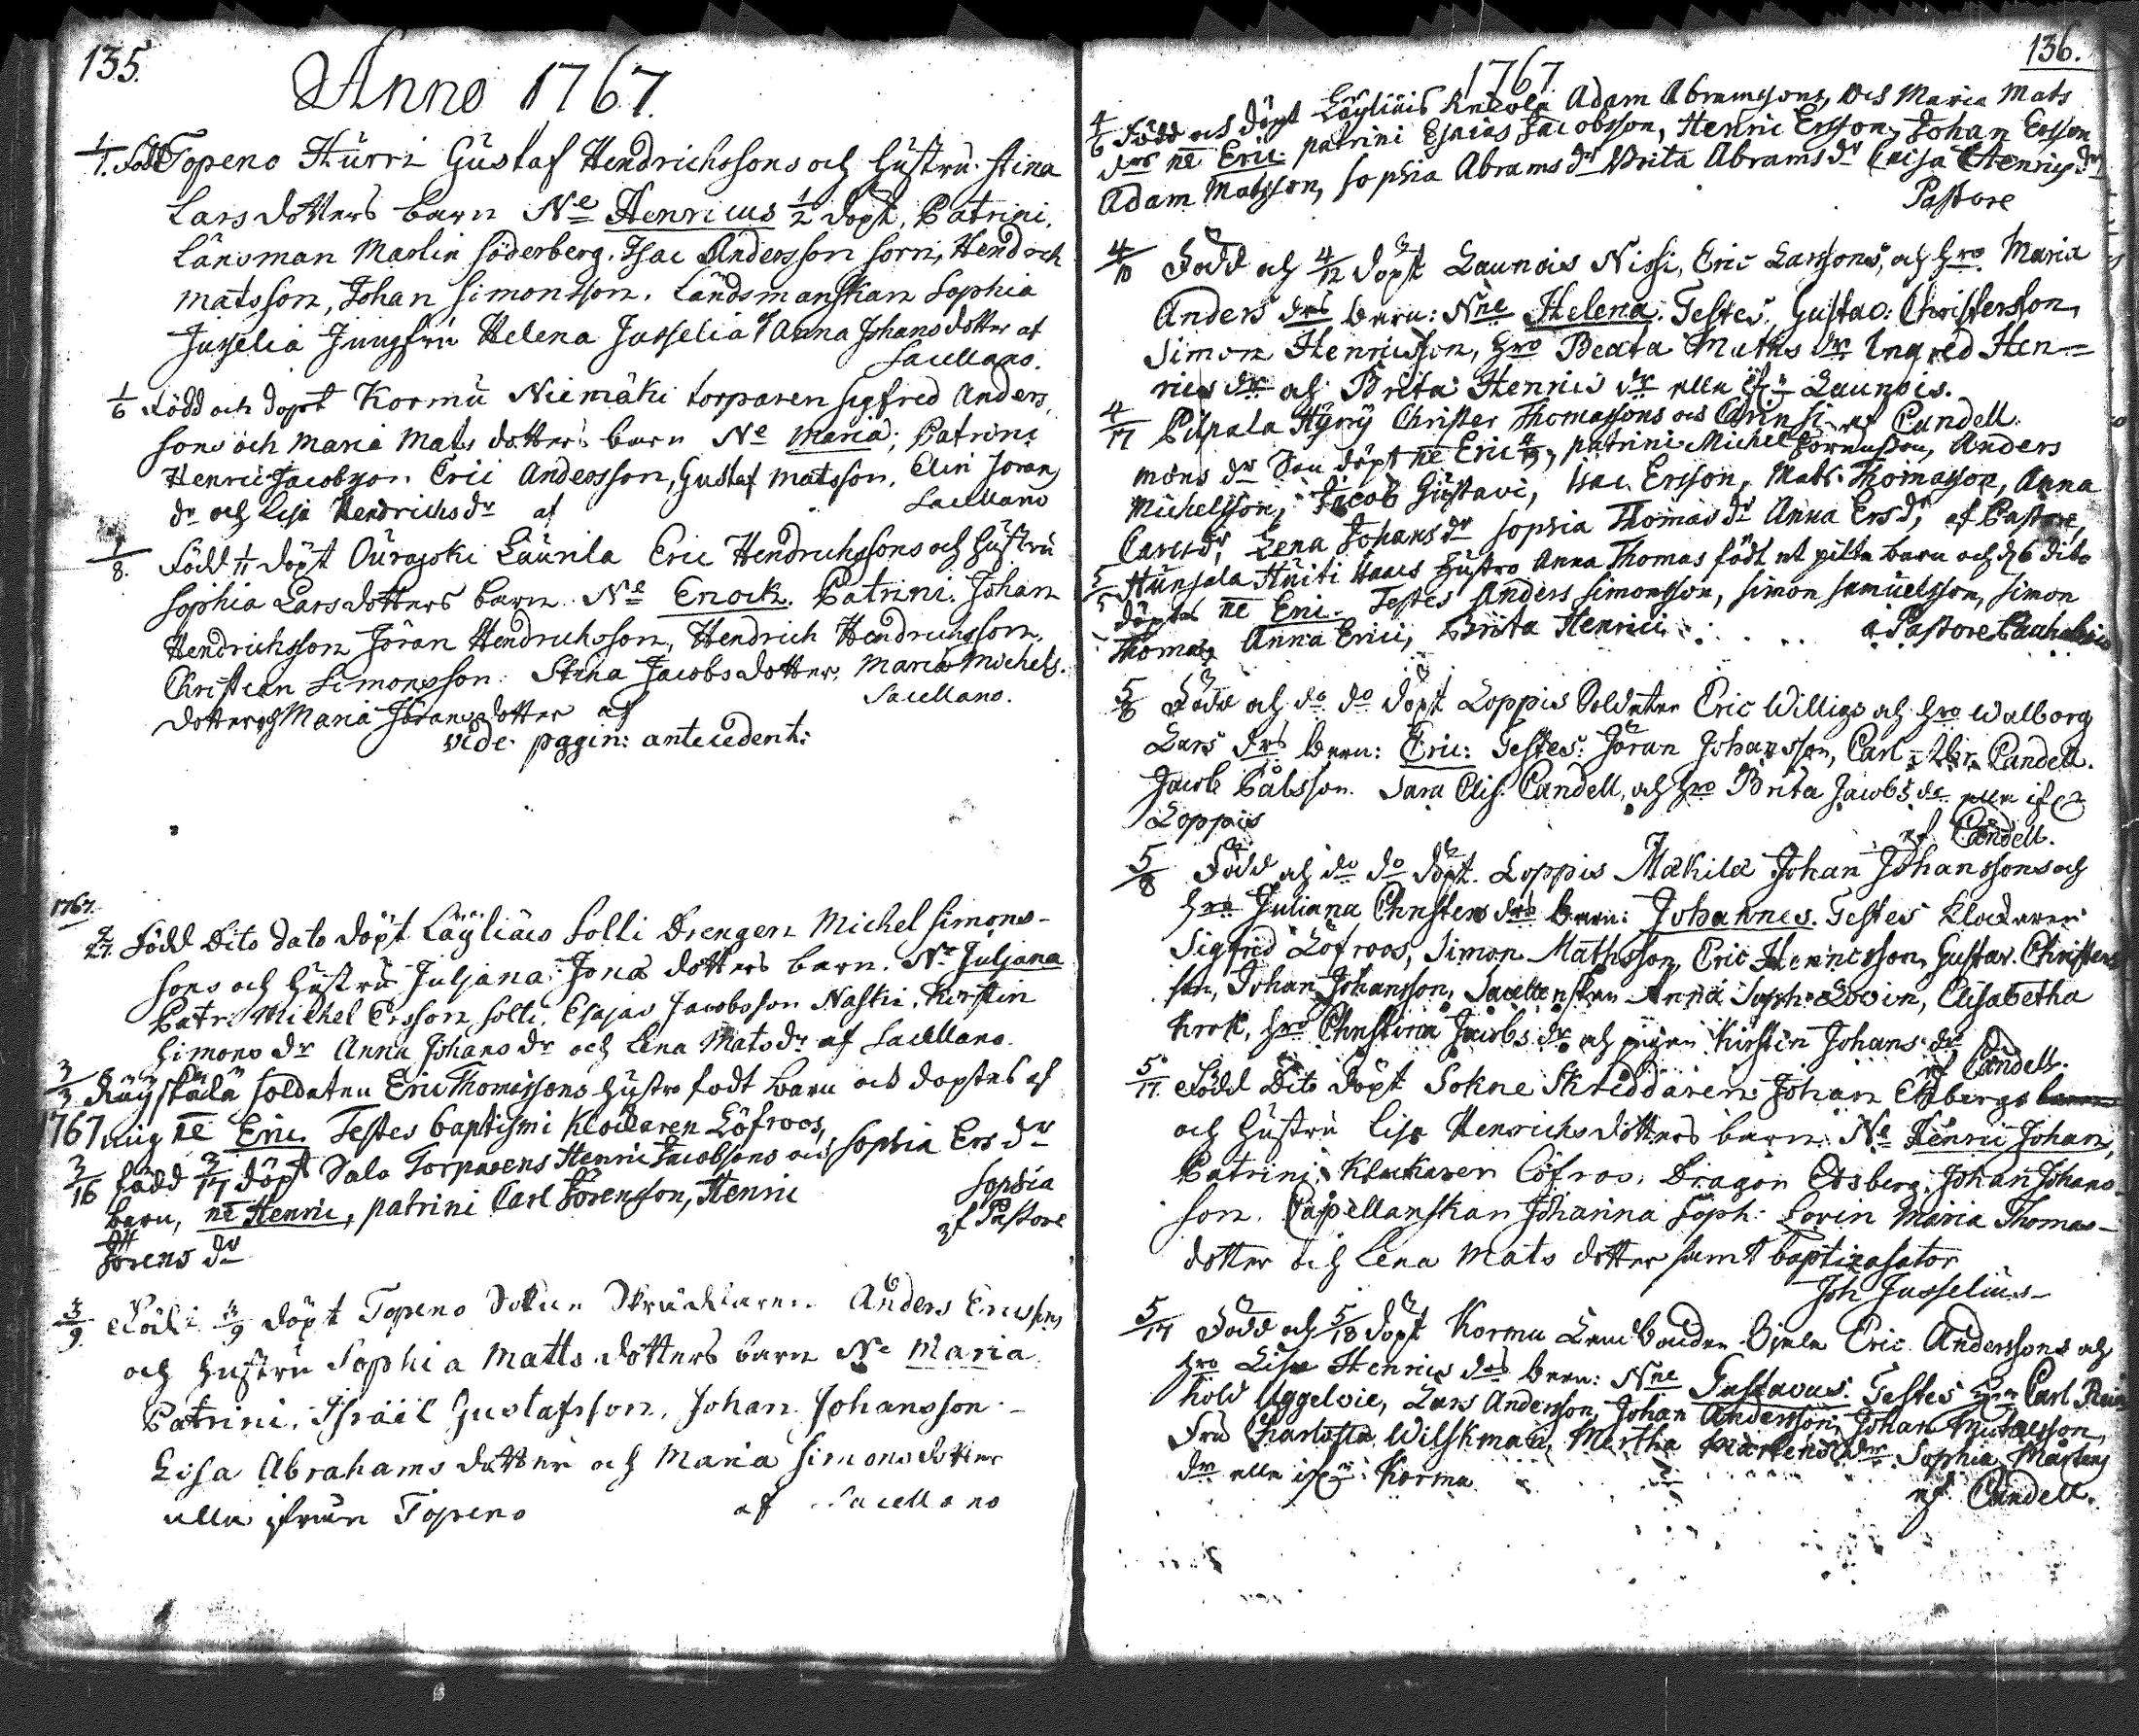 135.
Anno 1767.
1/1. född Topeno Hürri Gustaf Hendrichssons och hustru Stina
Larsdotters barn Ne Henricus 1/2 döpt. Patrini.
Länsman Marlin Söderberg. Isac Andersson sorri, Hendrich
Matsson, Johan Simonsson. Ländsmanskan Sophia
Jusselia Jungfru Helena Jusselia & Anna Johansdotter af
Sacellano.
1/6 Född och döpt Kormu Niemäki torparen Sigfred Anders
sons och Maria Mats dotters barn Ne Maria; Patrini
Henric Jacobson Eric Andersson, Gustaf Matsson. Elin Jörans
dr och Lisa Hendrichsdr af Sacellano
1/8. Född 1/11 döpt Ourajoki Laurila Eric Hendrichssons och hustru
Sophia Larsdotters barn Ne Enock. Patrini. Johan
Hendrichsson Jöran Hendrichsson, Hendrich Hendrichsson.
Christian Simonsson. Stina Jacobsdotter, Maria Michels
dotter och Maria Jöransdotter af Sacellano.
vide pagin: antecedent:
1767.
2/27. Född Dito dato döpt Läyliäis Solli Drengen Michel Simons-
sons och hustru Juljana Jonas dotters barn. Ne Juljana
Patr. Michel Ersson solli, Esajas Jacobsson Naski. Kirstin
Simons dr Anna Johans dr och Lena Matsdr af Sacellano.
3/3 Räyskälä soldaten Eric Thomassons hustro födt barn och döptes af
1767 mig ne Eric. Testes baptismi Klockaren Löfroos,
3/16 född 3/17 döpt Salo Torparens Henric Jacobsons och Sophia Ers dr
barn, ne Henric, patrini Carl Jörensson, Henric Sophia
Jörens dr af Pastore
3/9. Född 3/9 döpt Topeno Sokne Skräddaren Anders Ericssons
och hustru Sophia Matts dotters barn Ne Maria
Patrini. Israël Gustafsson. Johan Johansson -
Lisa Abrahams dotter och Maria Simonsdotter
alla ifrån Topeno af Sacellano
136.
1767
4/6 Född och döpt Läyliäis Adam Abramssons, och Maria Mats
drs ne Eric. patrini Esaias Jacobsson, Henric Ersson, Johan Ersson
Adam Matsson, Sophia Abramsdr Brita Abramsdr Caisa Henrics dr
Pastore
4/10 Född och 4/12 döpt Launois Nissi, Eric Larssons, och hro Maria
Anders drs barn: Nne Helena. Testes, Gustav: Christersson,
Simon Henricsson, hro Beata Maths dr Ingred Hen=
rics dr och Brita Henrics dr alla ifr. Launois.
af Candell.
4/17 Pilpala Hyrry Christer Thomassons och Carin Si-
mons dr Son döpt ne Eric 4/19, patrini Michel Anders
Michelsson, Jacob Gustavi, Isac Ersson, Mats Thomasson, Anna
Carlsdr, Lena Johansdr Sophia Thomasdr Anna Ersdr, af Pastore,
5/5 Hunsala Huiti Hans hustro Anna Thomas födt et pilte barn och d 6 dito
döptes ne Eric. Testes Anders Simonsson, Simon Samuelsson, Simon
Thomas Anna Erici, Brita Henrici a Pastore
5/8 Född och do do döpt Loppis Soldaten Eric Willigs och hro Walborg
Lars drs barn: Eric: Testes: Jöran Johansson, Carl Abr. Candell.
Jacob Pålsson. Sara Elis. Candell, och hro Brita Jacobs dr alla ifr.
Loppis
af Candell.
5/8 Född och do do döpt. Loppis Mäkilä Johan Johanssons och
hro Juliana Christers drs barn: Johannes. Testes Klockaren
Sigfrid Löfroos, Simon Mathsson, Eric Henricsson, Gustav. Christers
son, Johan Johansson, Sacellanskan Anna Soph: Lovin, Elisabetha
Krok, hro Christina Jacobs dr och pigan Kirstin Johans dr
af Candell.
5/17. Född Dito döpt Sokne Skreddaren Johan Edbergs
och hustru Lisa Henrichs dotters barn. Ne Henric Johan,
Patrini. Klockaren Löfros. Dragon Edsberg, Johan Johans-
son. Capellanskan Johanna Soph: Lovin Maria Thomas-
dotter och Lena Mats dotter samt baptizasator
Joh Jusselius-
5/17 Född och 5/18 döpt Kormu Landbonden Eric Anderssons och
hro Lisa Henrics drs barn: Nne Gustavus. Testes Hr Carl Rein
hold Uggelvie, Lars Andersson, Johan Andersson, Johan Michelsson,
Fru Charlotta Wilskman, Mertha Mårtens dr. Sophia Mårtens
dr alla ifrån Kormu
af Candell.